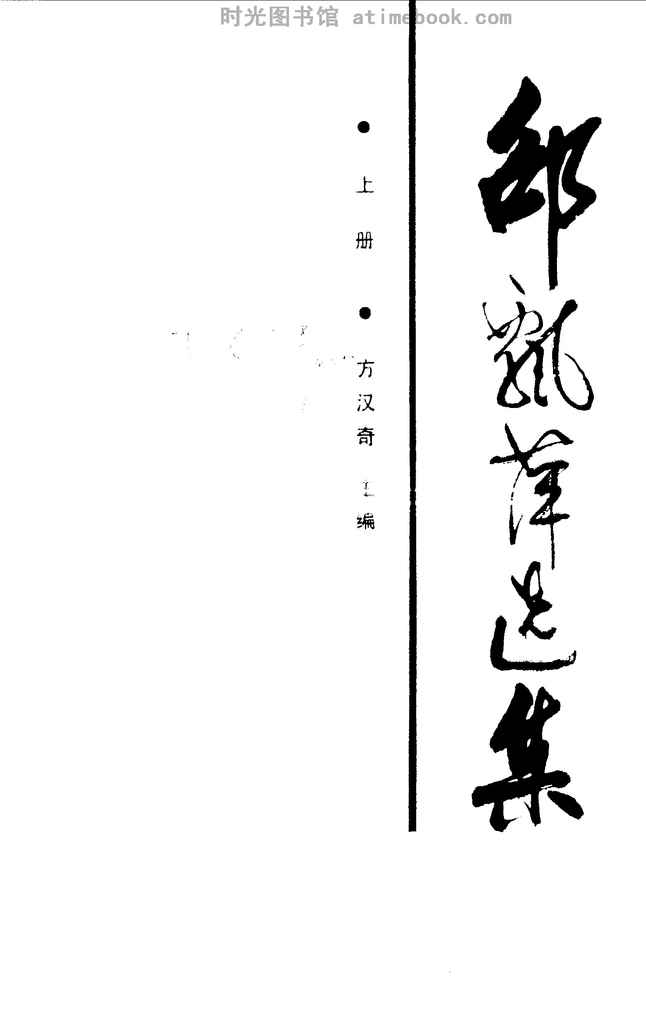 时光图书馆 atimebook.com
邵飘萍选集
●上册●方汉奇 主编